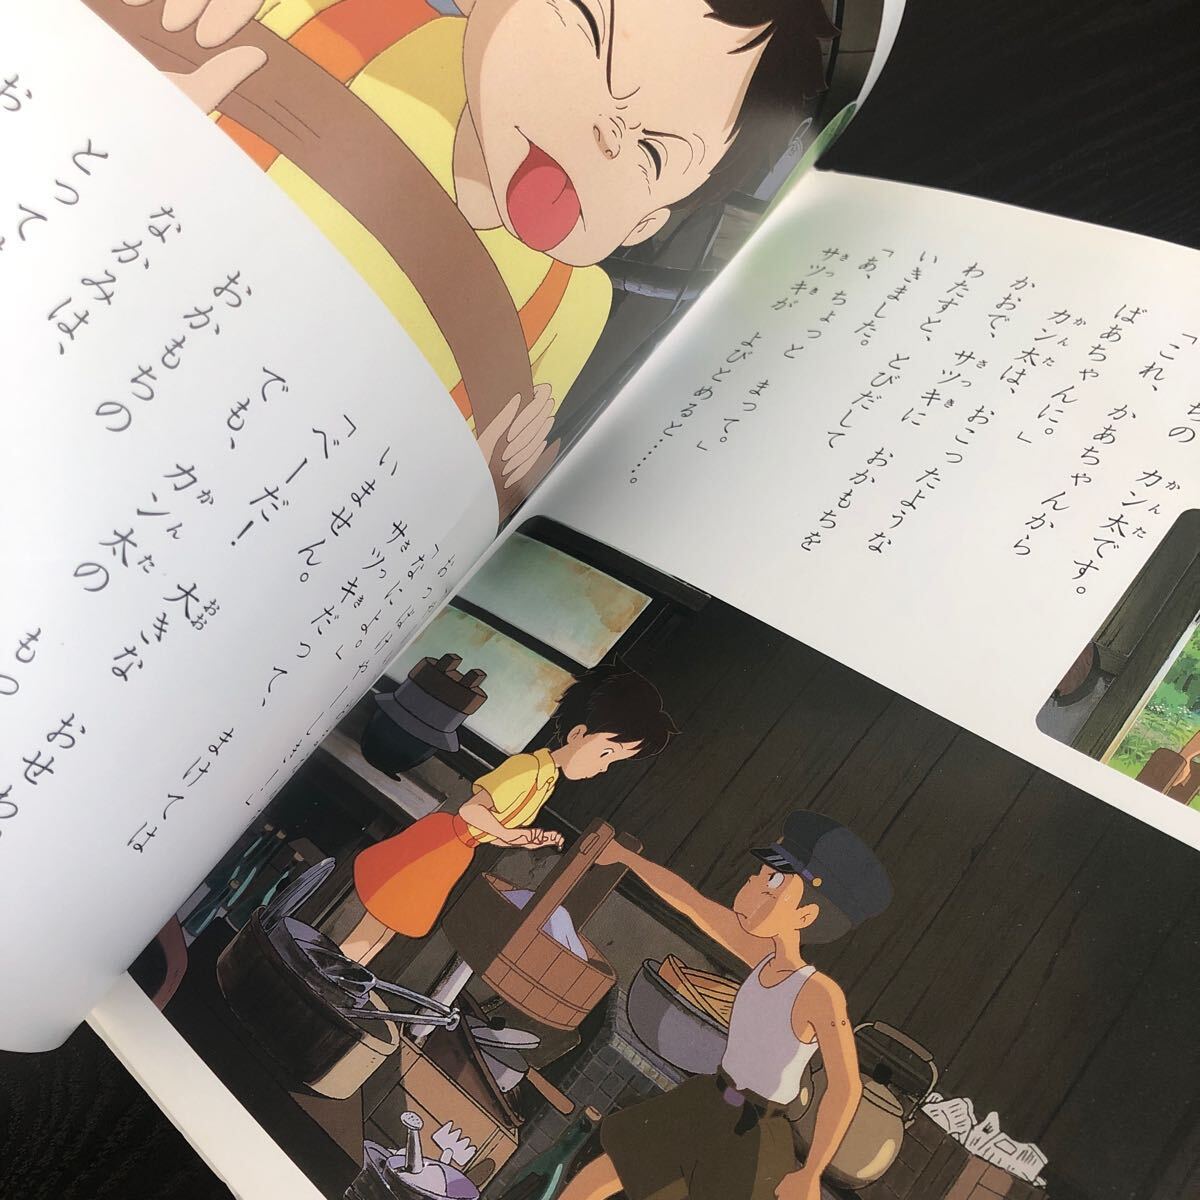 ちの カン太です。
「これ、 かあちゃんから
ばあちゃんに。」
カン太は、 おこったような
かおで、 サツキに おかもちを
わたすと、 とびだして
いきました。
「あ、ちょっと まって。」
サツキが よびとめると……。
「なによ。」
サツキだって、 まけては
いません。
「べーだ！ 大きな おせわ
でも、 カン太の もっ
おかもちの
なかみは、
とって
お